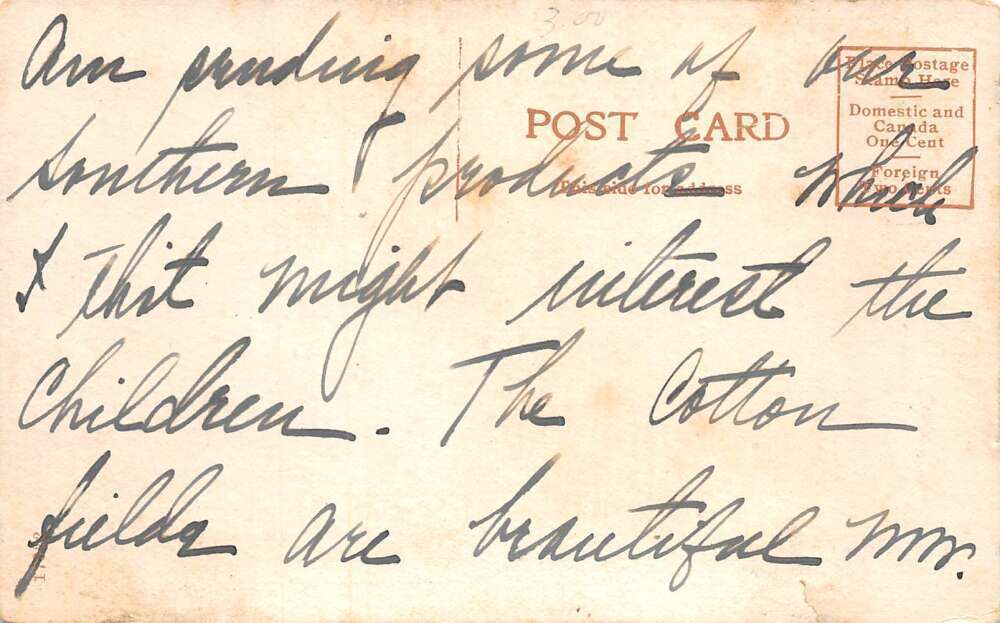 3.00
Am sending some of our
Place Postage
Stamp Here
Domestic and
Canada
One Cent
Foreign
Two Cents
POST CARD
southern products which
This side for address
I tho't might interest the
Children. The Cotton
fields are beautiful now.